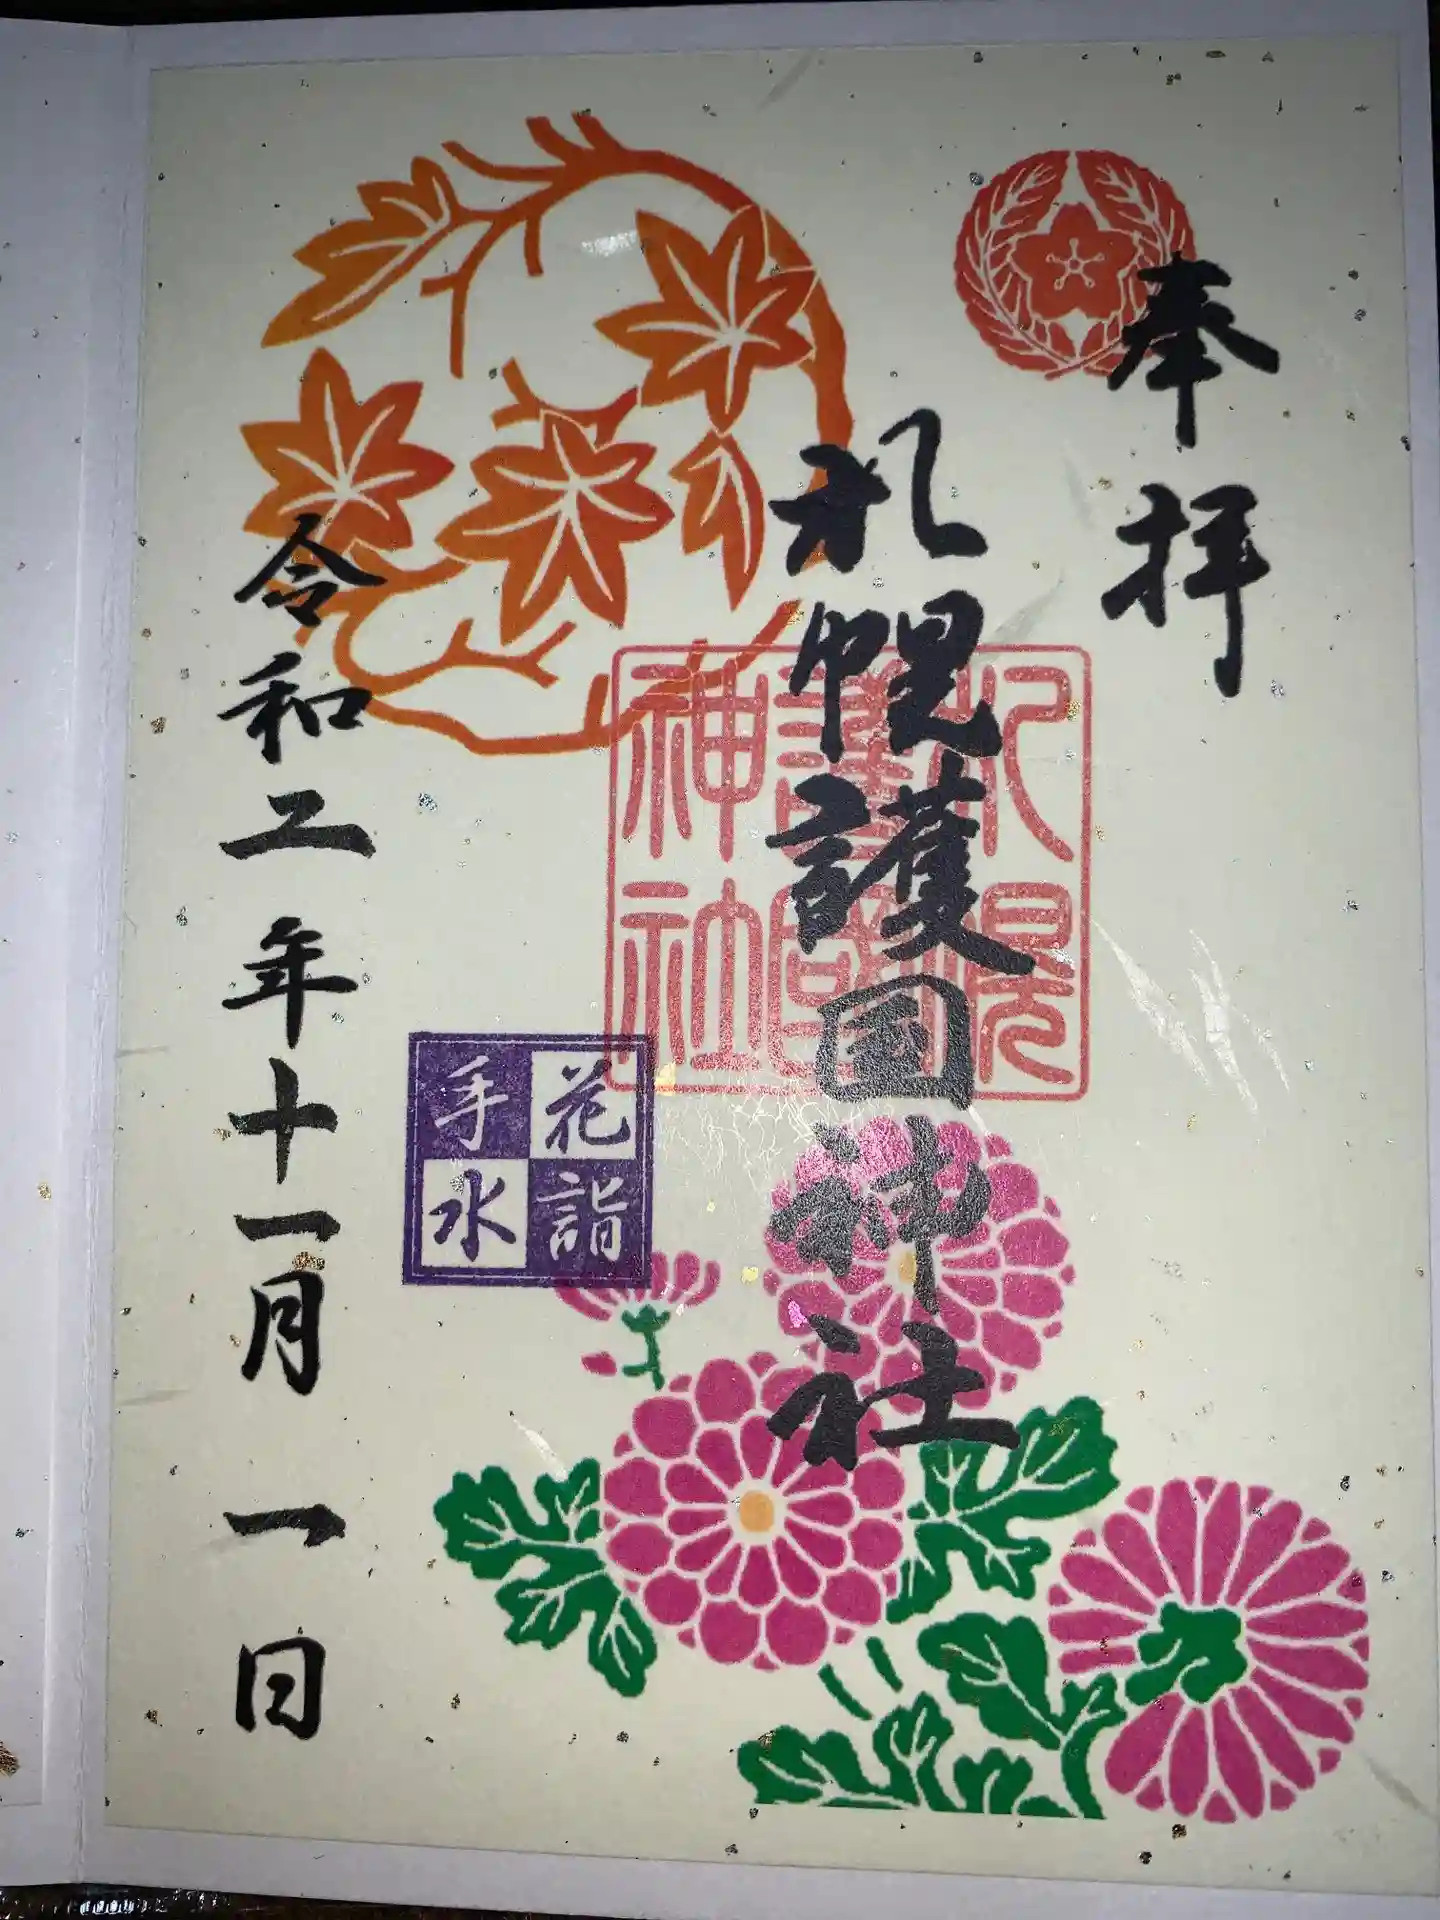 奉拝
札幌護國神社
札幌
護國
神社
花詣
手水
令和二年十一月一日